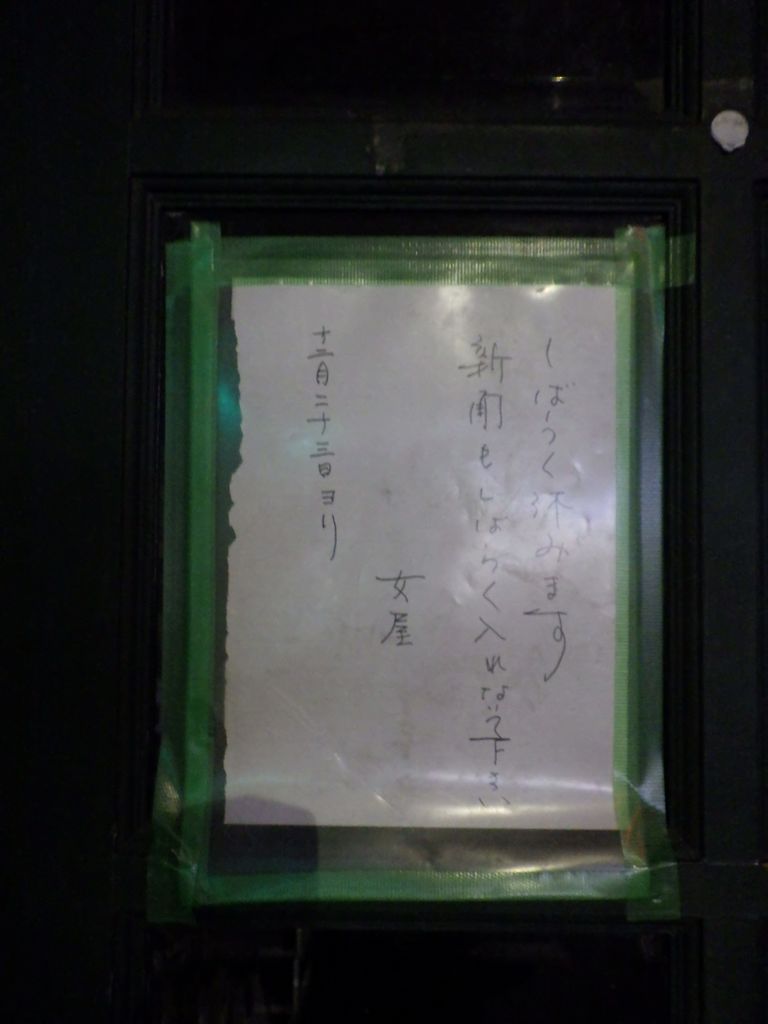 しばらく休みます
新聞もしばらく入れないで下さい
女屋
十二月二十三日ヨリ